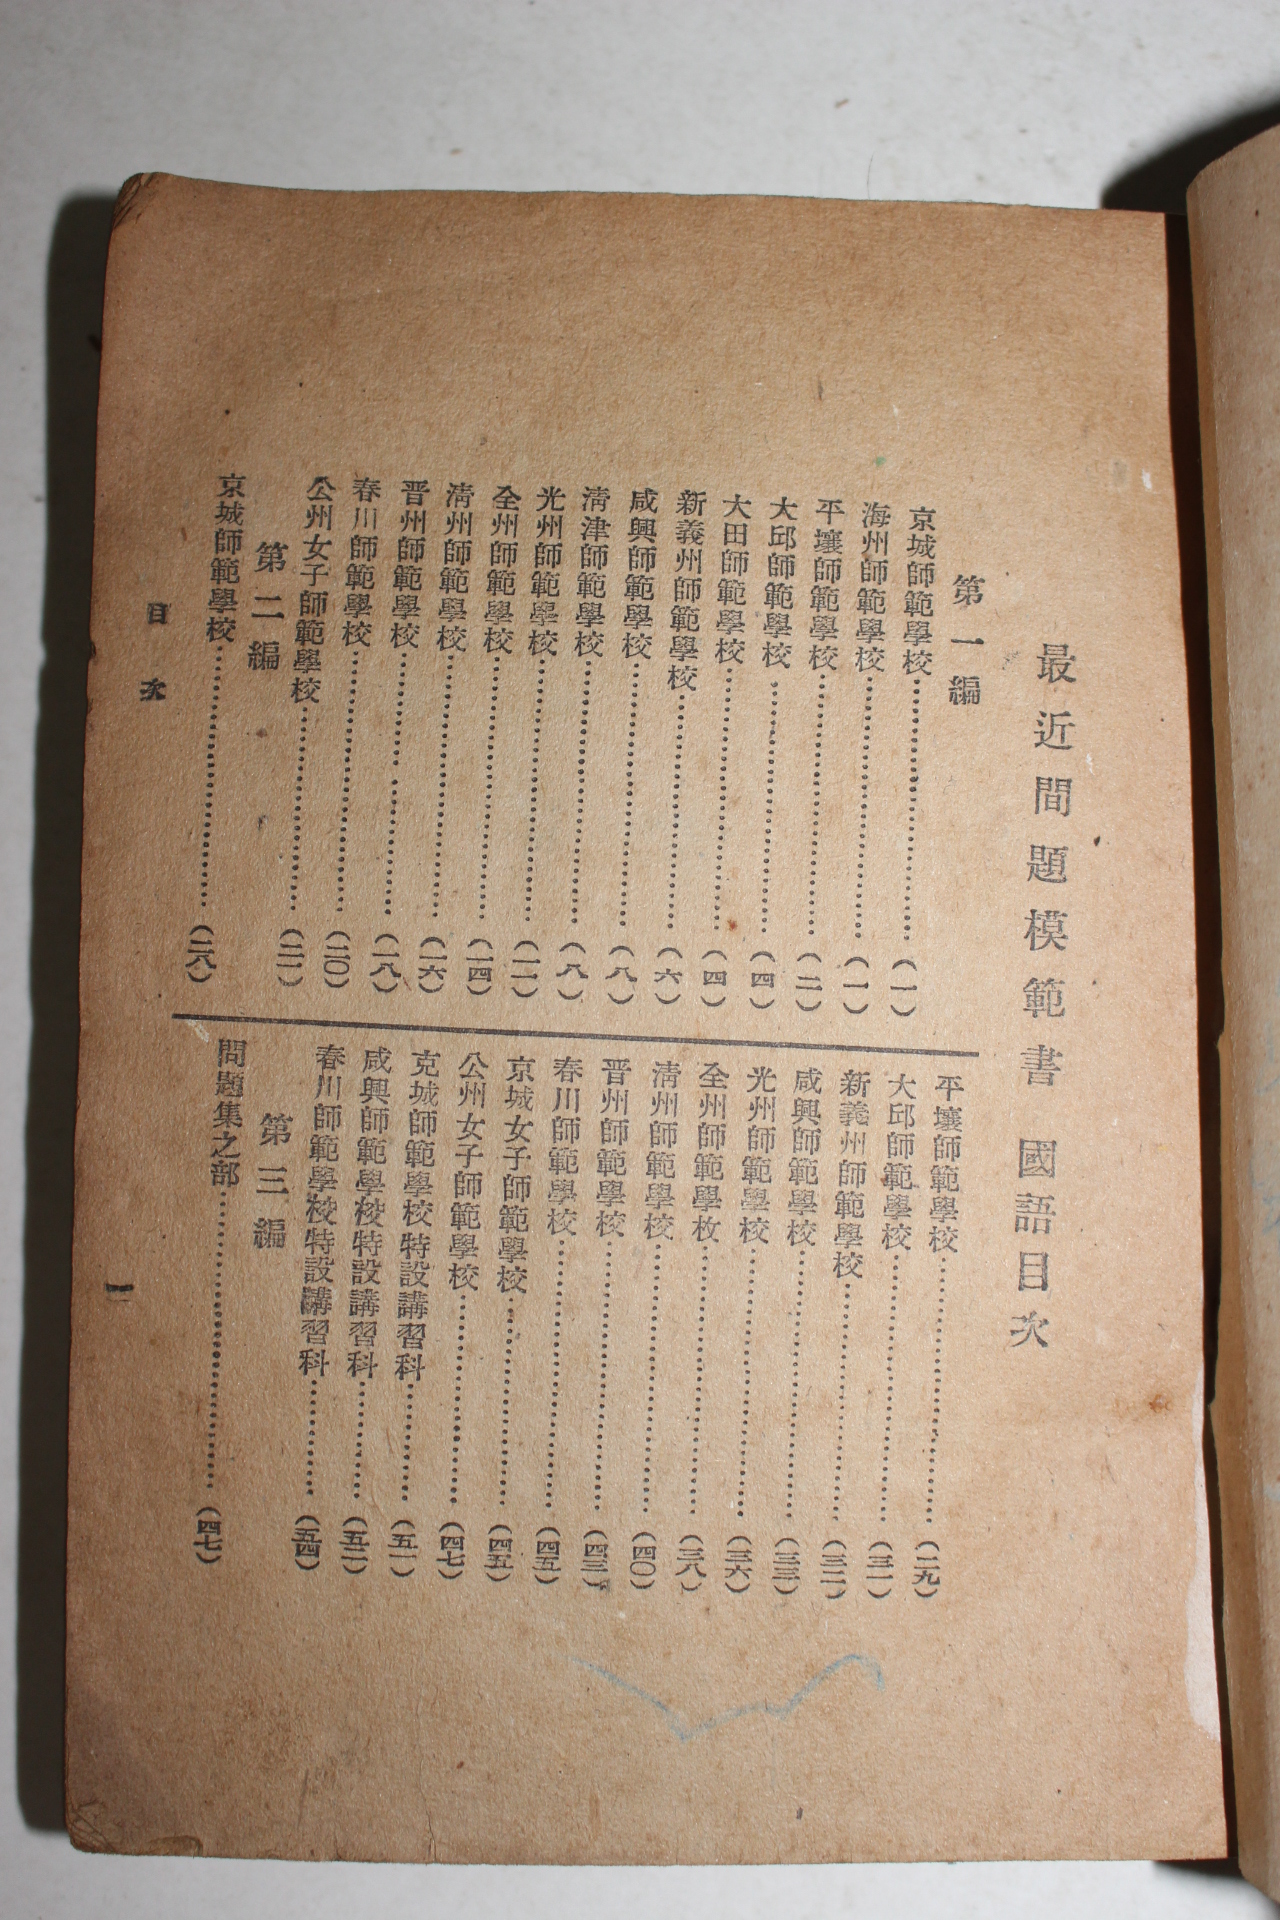 最近間題模範書 國語目次
第一編
京城師範學校………(一)
海州師範學校………(一)
平壤師範學校………(二)
大邱師範學校………(四)
大田師範學校………(四)
新義州師範學校………(六)
咸興師範學校………(八)
淸津師範學校………(八)
光州師範學校………(一一)
全州師範學校………(一四)
淸州師範學校………(一六)
晋州師範學校………(一八)
春川師範學校………(二〇)
公州女子師範學校………(二一)
第二編
京城師範學校………(二八)
平壤師範學校………(二九)
大邱師範學校………(三一)
新義州師範學校………(三二)
咸興師範學校………(三三)
光州師範學校………(三六)
全州師範學枚………(三八)
淸州師範學校………(四〇)
晋州師範學校………(四三)
春川師範學校………(四五)
京城女子師範學校………(四五)
公州女子師範學校………(四七)
克城師範學校特設講習科………(五一)
咸興師範學校特設講習科………(五二)
春川師範學校特設講習科………(五四)
第三編
問題集之部………(四七)
目次
一